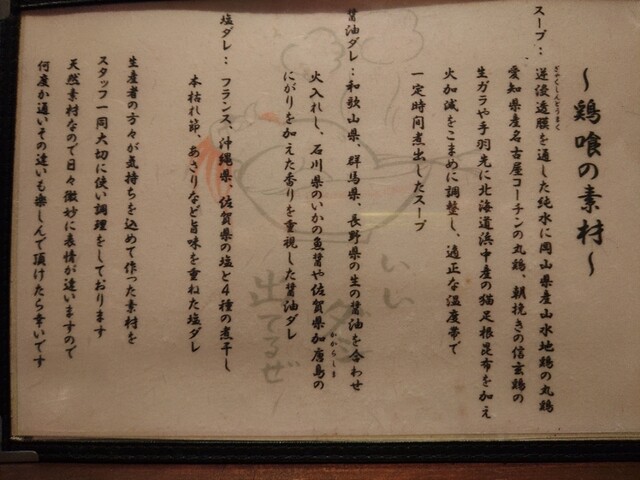 ～鶏喰の素材～
スープ：逆浸透膜を通した純水に岡山県産山水地鶏の丸鶏
ぎゃくしんとうまく
愛知県産名古屋コーチンの丸鶏、朝挽きの信玄鶏の
生ガラや手羽先に北海道浜中産の猫足根昆布を加え
火加減をこまめに調整し、適正な温度帯で
一定時間煮出したスープ
醤油ダレ：和歌山県、群馬県、長野県の生の醤油を合わせ
火入れし、石川県のいかの魚醤や佐賀県加唐島の
かからしま
にがりを加えた香りを重視した醤油ダレ
塩ダレ：フランス、沖縄県、佐賀県の塩と4種の煮干し
本枯れ節、あさりなど旨味を重ねた塩ダレ
生産者の方々が気持ちを込めて作った素材を
スタッフ一同大切に使い調理をしております
天然素材なので日々微妙に表情が違いますので
何度か通いその違いも楽しんで頂けたら幸いです
いい
出てるぜ